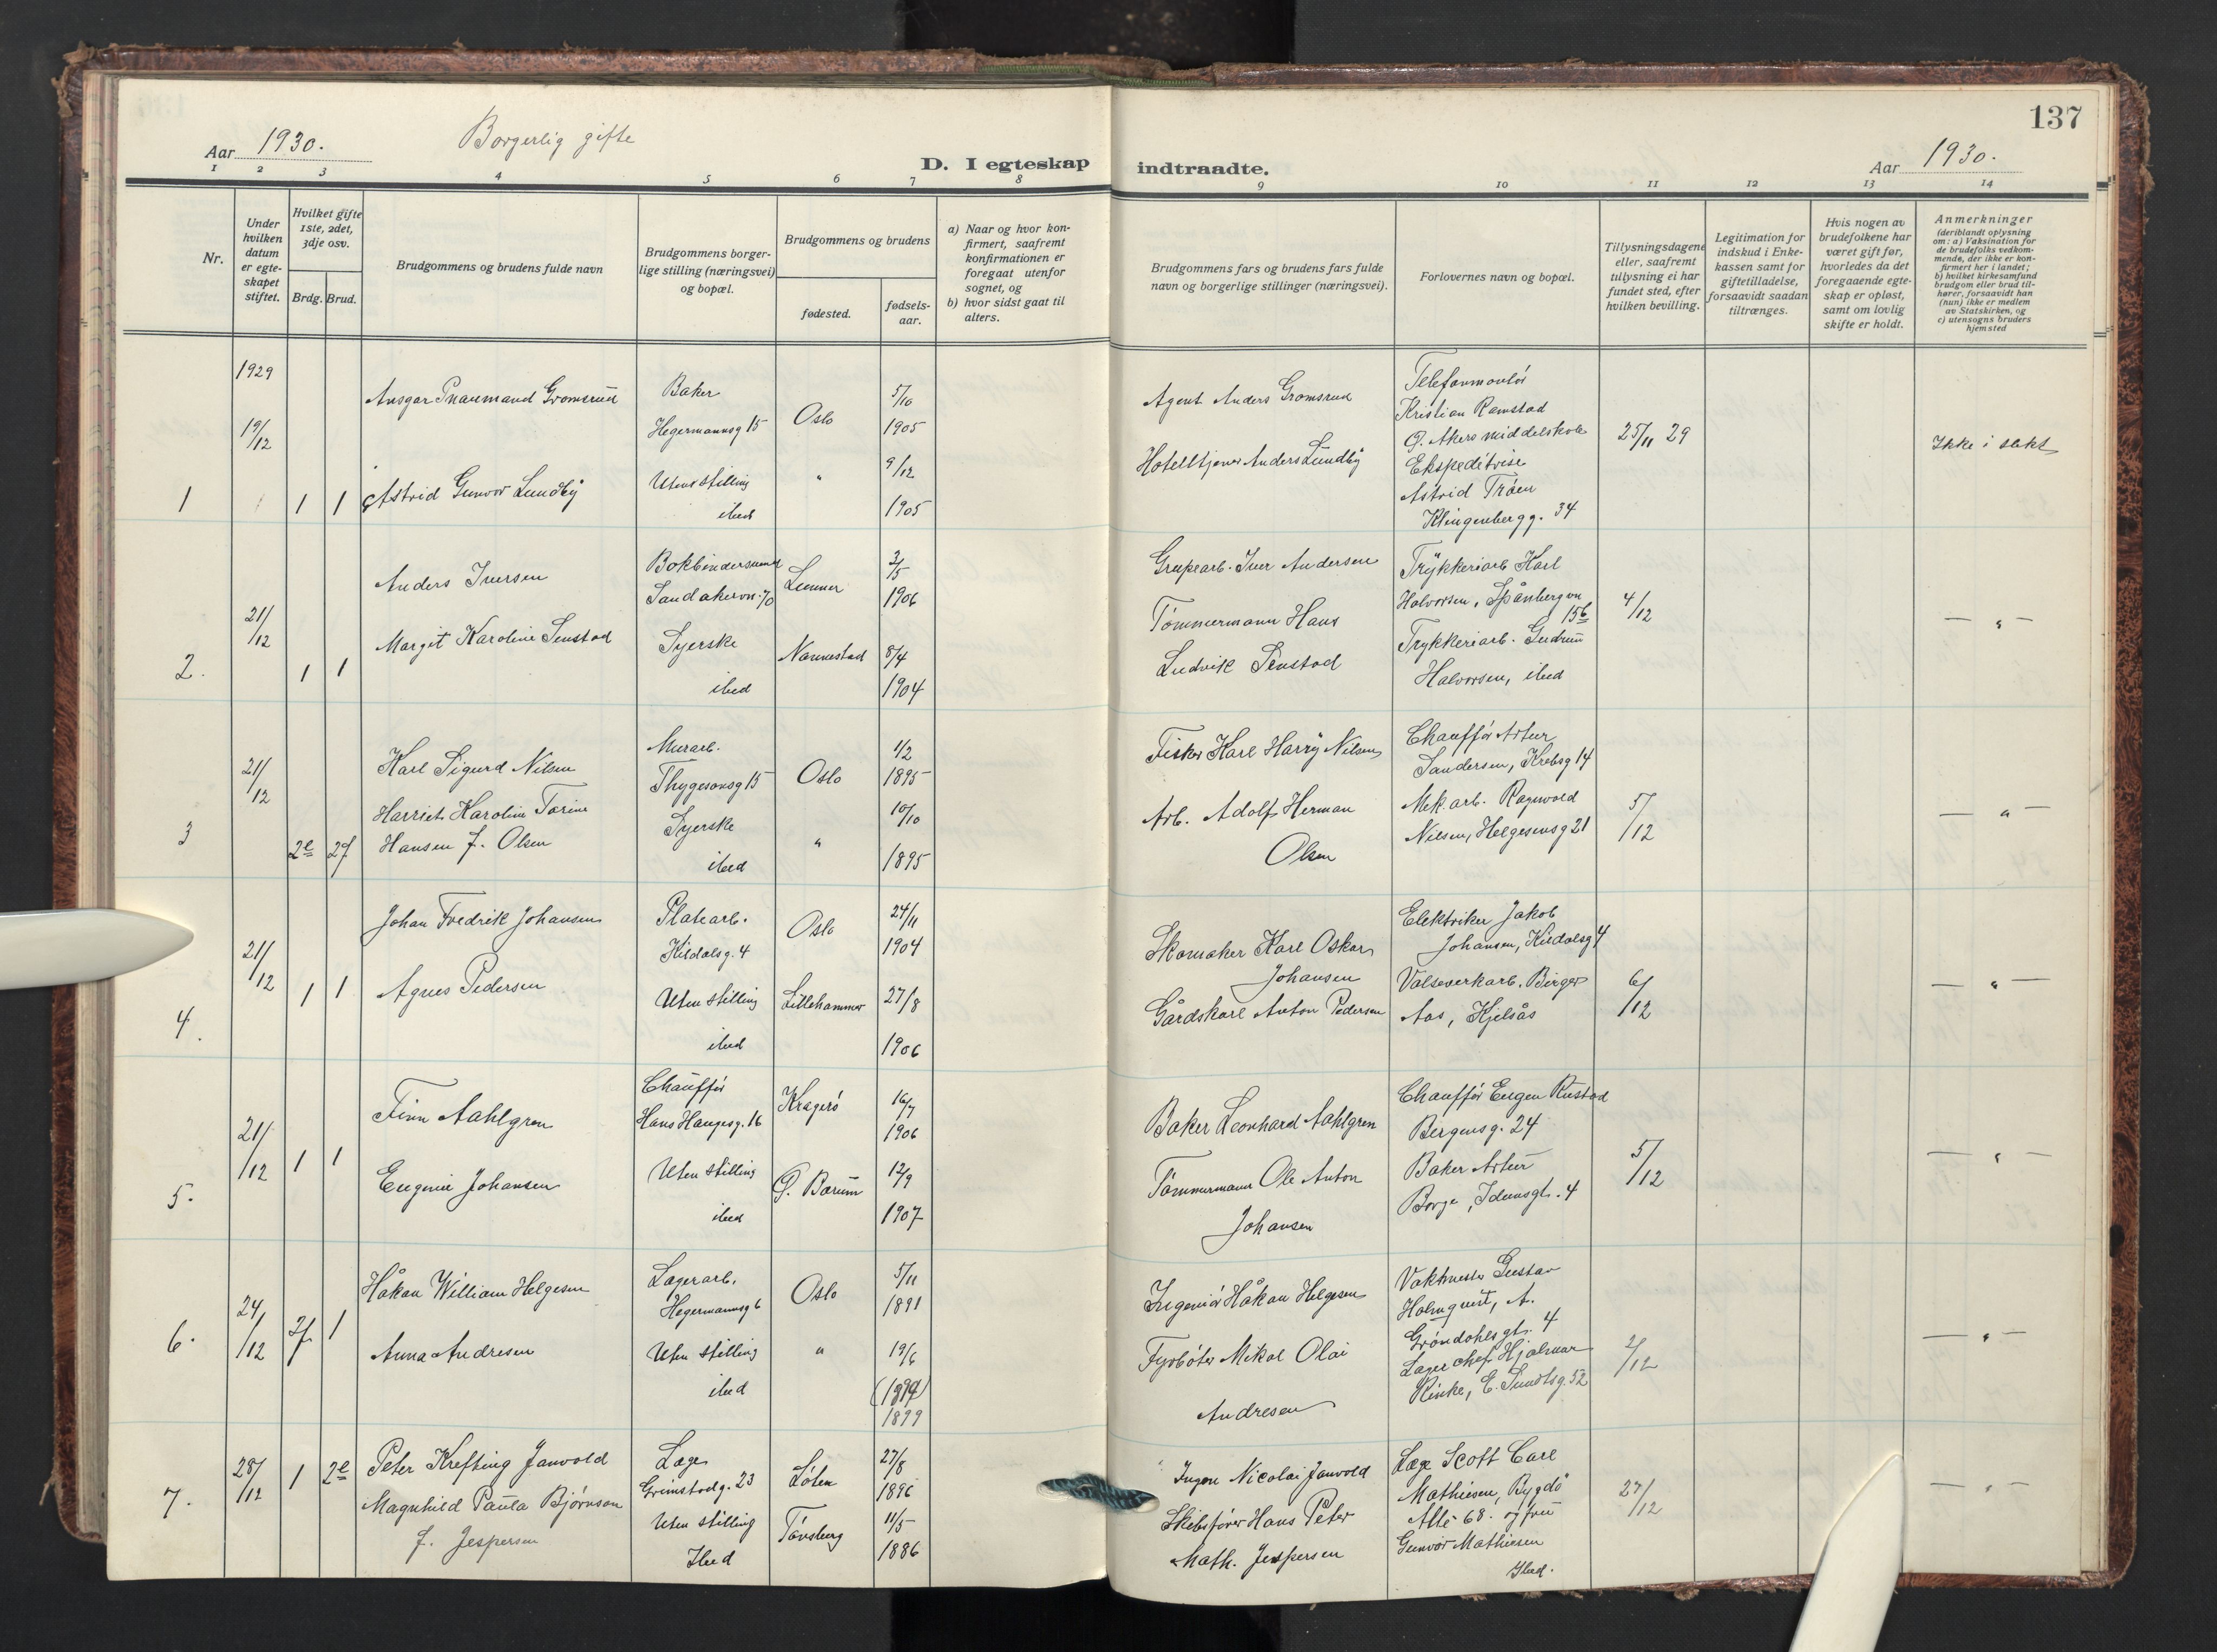 137
Aar 1930.
Borgerlig gifte
D. I egteskap indtraadte.
Aar 1930.
1 2 3 4 5 6 7 8 9 10 11 12 13 14
Nr.
Under
hvilken
datum
er egte-
skapet
stiftet.
Hvilket gifte
1ste, 2det,
3dje osv.
Brdg. Brud.
Brudgommens og brudens fulde navn
Brudgommens borger-
lige stilling (næringsvei)
og bopæl.
Brudgommens og brudens
fødested.
fødsels-
aar.
a) Naar og hvor kon-
firmert, saafremt
konfirmationen er
foregaat utenfor
sognet, og
b) hvor sidst gaat til
alters.
Brudgommens fars og brudens fars fulde
navn og borgerlige stillinger (næringsvei).
Forlovernes navn og bopæl.
Tillysningsdagene
eller, saafremt
tillysning ei har
fundet sted, efter
hvilken bevilling.
Legitimation for
indskud i Enke-
kassen samt for
giftetilladelse,
forsaavidt saadan
tiltrænges.
Hvis nogen av
brudefolkene har
været gift før,
hvorledes da det
foregaaende egte-
skap er opløst,
samt om lovlig
skifte er holdt.
Anmerkninger
(deriblandt oplysning
om: a) Vaksination for
de brudefolks vedkom-
mende, der ikke er kon-
firmert her i landet;
b) hvilket kirkesamfund
brudgom eller brud til-
hører, forsaavidt han
(hun) ikke er medlem
av Statskirken, og
c) utensogns bruders
hjemsted
1
1929
19/12
1 1
Ansgar Gromsrud
Astrid Gunvor Lundby
Baker
Hegermannsg 15
Uten stilling
ibid
Oslo
"
5/10
1905
9/12
1905
Agent Anders Gromsrud
Hotelltjener Anders Lundby
Telefonmontör
Kristian Ramstad
Ø. Akers middelskole
Ekspeditrise
Astrid Tröen
Klingenbergg. 34
25/11 29
Ikke i slekt
2.
21/12
1 1
Anders Iversen
Margit Karoline Senstad
Bokbindersvend
Sandakervn. 70
Syerske
ibid
Lunner
Nannestad
3/5
1906
8/4
1904
Grubearb. Iver Andersen
Tömmermann Hans
Ludvik Senstad
Trykkeriarb Karl
Halvorsen, Spånbergvn
15b
Trykkeriarb. Gudrun
Halvorsen, ibid
4/12
— " —
3
21/12
2e 2f
Karl Sigurd Nilsen
Harriet Karoline Torine
Hansen f. Olsen
Murarb.
Thygesonsg 15
Syerske
ibid
Oslo
"
1/2
1895
10/10
1895
Fisker Karl Harry Nilsen
Arb. Adolf Herman
Olsen
Chaufför Artur
Sandersen, Krebsg 14
Mek. arb. Ragnvald
Nilsen, Helgesensg 21
5/12
— " —
4.
21/12
1 1
Johan Fredrik Johansen
Agnes Pedersen
Platearb.
Kildalsg. 4
Uten stilling
ibid
Oslo
Lillehammer
24/11
1904
27/8
1906
Skomaker Karl Oskar
Johansen
Gårdskarl Anton Pedersen
Elektriker Jakob
Johansen, Kildalsg 4
Valseverkarb. Birger
Aas, Kjelsås
6/12
— " —
5.
21/12
1 1
Finn Aahlgren
Eugenie Johansen
Chaufför
Hans Haugesg. 16
Uten stilling
ibid
Kragerö
Ø. Bærum
16/7
1906
12/9
1907
Baker Leonhard Aahlgren
Tömmermann Ole Anton
Johansen
Chaufför Eugen Rustad
Bergensg. 24
Baker Artur
Borge, Idunsgt. 4
5/12
— " —
6.
24/12
2f 1
Håkan William Helgesen
Anna Andresen
Lagerarb.
Hegermannsg 6
Uten stilling
ibid
Oslo
"
5/11
1891
19/6
(1894)
1899
Ingeniör Håkan Helgesen
Fyrböter Mikal Olai
Andresen
Vaktmester Gustav
Holmquist, A.
Gröndahlsgt. 4
Lagerchef Hjalmar
Rinke, E. Sundtsg. 52
2/12
— " —
7.
28/12
1 2e
Peter Krefting Janvold
Magnhild Paula Björnson
f. Jespersen
Læge
Grimstadg. 23
Uten stilling
Ibid
Löten
Tönsberg
27/8
1896
11/5
1886
Ingen Nicolai Janvold
Skibsförer Hans Peter
Math. Jespersen
Læge Scott Carl
Mathiesen, Bygdö
Allé 68. og fru
Gunvor Mathiesen
Ibid.
27/12
— " —